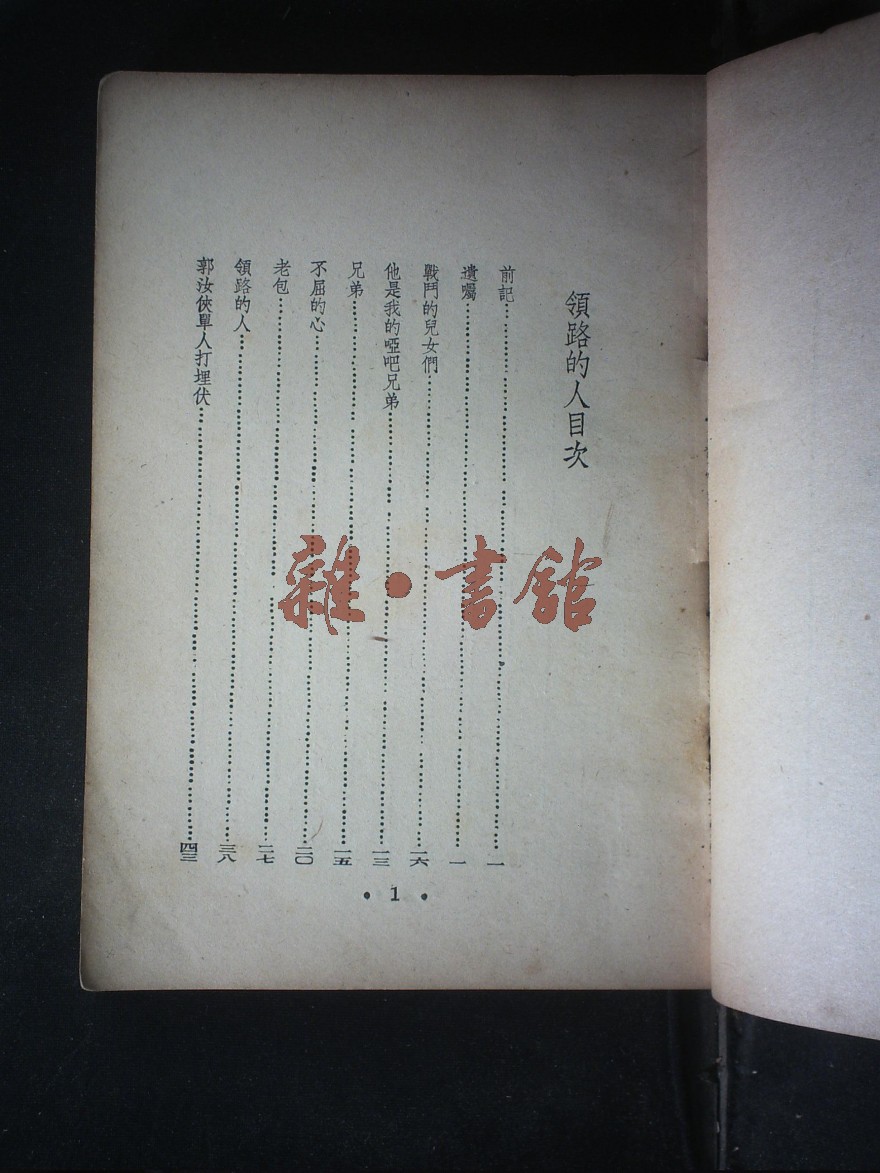 領路的人目次
前記……一
遺囑……一
戰鬥的兒女們……一六
他是我的啞吧兄弟……一三
兄弟……一五
不屈的心……二〇
老包……二七
領路的人……三八
郭汝俠單人打埋伏……四三
• 1 •
雜•書館